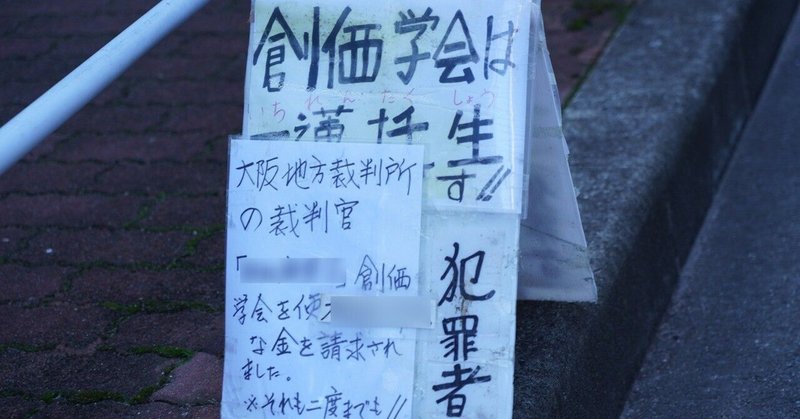 創価学会は
ちれんたくしょう
一蓮托生
す!!
大阪地方裁判所
の裁判官
「 」創価
学会を使
な金を請求され
ました。
※それも二度までも!!
犯罪者